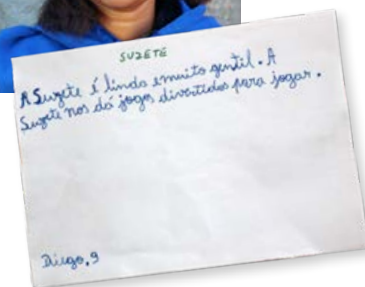 SUZETE
A Suzete é linda e muito gentil. A
Suzete nos dá jogos divertidos para jogar.
Diego, 9